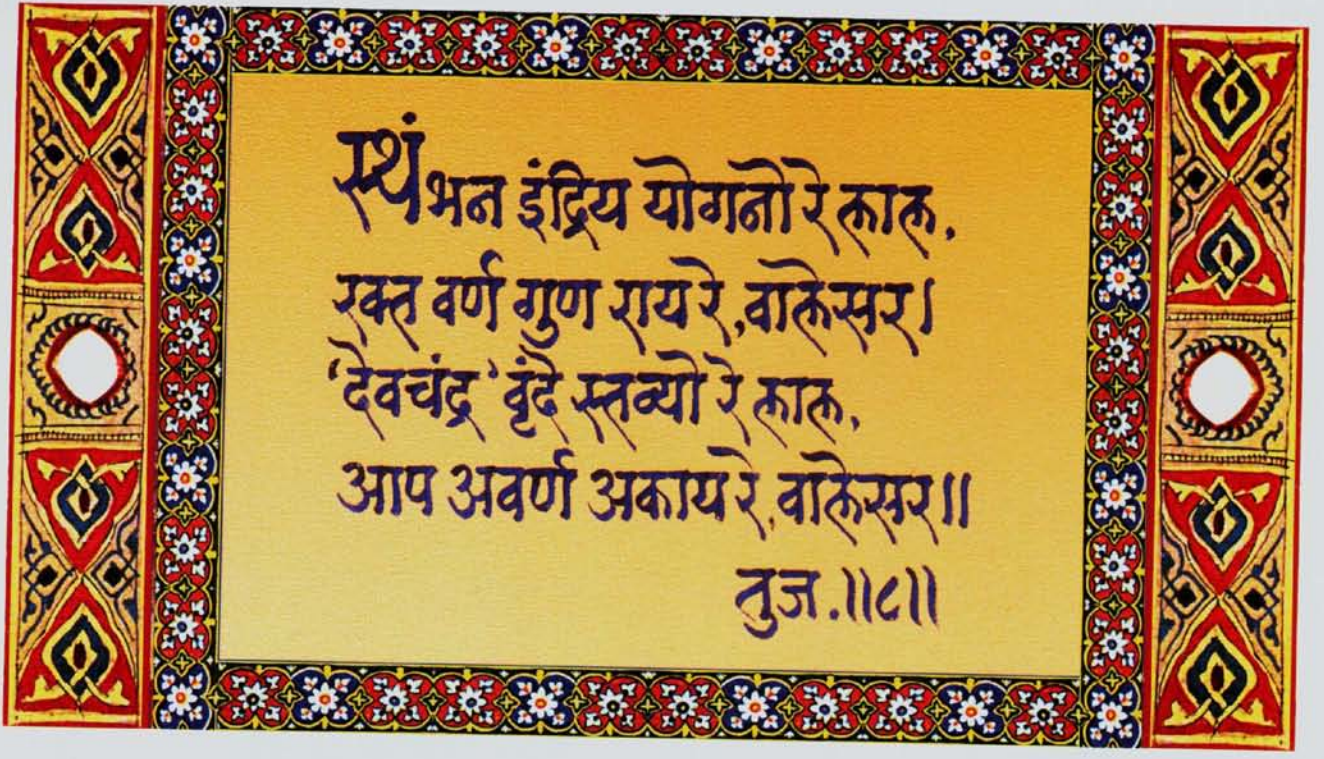 स्थंभन इंद्रिय योगनो रे लाल,
रक्त वर्ण गुण राय रे, वालेसर।
'देवचंद्र' वृंदै स्तव्यो रे लाल,
आप अवर्ण अकाय रे, वालेसर॥
तुज.॥८॥